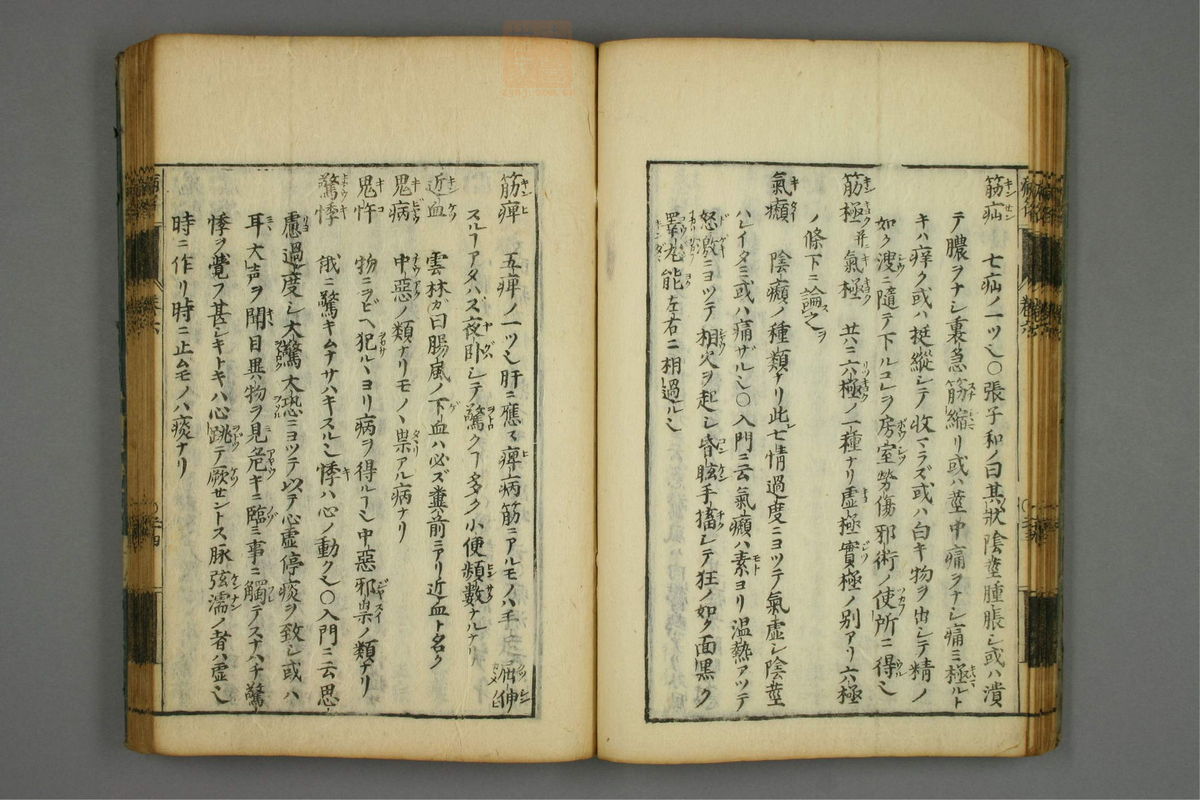 筋疝 七疝ノ一ツ也○張子和ノ曰其狀陰莖腫脹シ或ハ潰
テ膿ヲナシ裏急筋縮リ或ハ莖中痛ヲナシ痛ミ極ルト
キハ痒ク或ハ挺縱シテ收マラズ或ハ白キ物ヲ出シテ精ノ
如ク溲ニ隨テ下ルコレヲ房室勞傷邪術ノ使所ニ得也
筋極 并氣極 共ニ六極ノ一種ナリ虛極實極ノ別アリ六極
ノ條下ニ論之ヲ
氣㿗 陰㿗ノ種類ナリ此七情過度ニヨツテ氣虛シ陰莖
ハレイタミ或ハ痛ザル也○入門ニ云氣㿗ハ素ヨリ溫熱アツテ
怒激ニヨツテ相火ヲ起シ昏眩手搐シテ狂ノ如ク面黑ク
睪丸能左右ニ相過ル也
筋痺 五痺ノ一ツ也肝ニ應ズ痺病筋ニアルモノハ手足屈伸
スルヿアタハズ夜卧シテ驚クヿ多ク小便頻數ナルナリ
近血 雲林カ曰腸風ノ下血ハ必ズ糞前ニアリ近血ト名ク
鬼病 中惡ノ類ナリモノヽ祟アル病ナリ
鬼忤 物ニヲビヘ犯ルヽヨリ病ヲ得ルヿ也中惡邪祟ノ類ナリ
驚悸 俄ニ驚キムナサハキスル也悸ハ心ノ動ク也○入門ニ云思
慮過度シ大驚大恐ニヨツテ以テ心虛停痰ヲ致シ或ハ
耳大声ヲ聞目異物ヲ見危キニ臨ミ事ニ觸テスナハチ驚
悸ヲ覺フ甚シキトキハ心跳テ厥セントス脉弦濡ノ者ハ虛也
時ニ作リ時ニ止ムモノハ痰ナリ